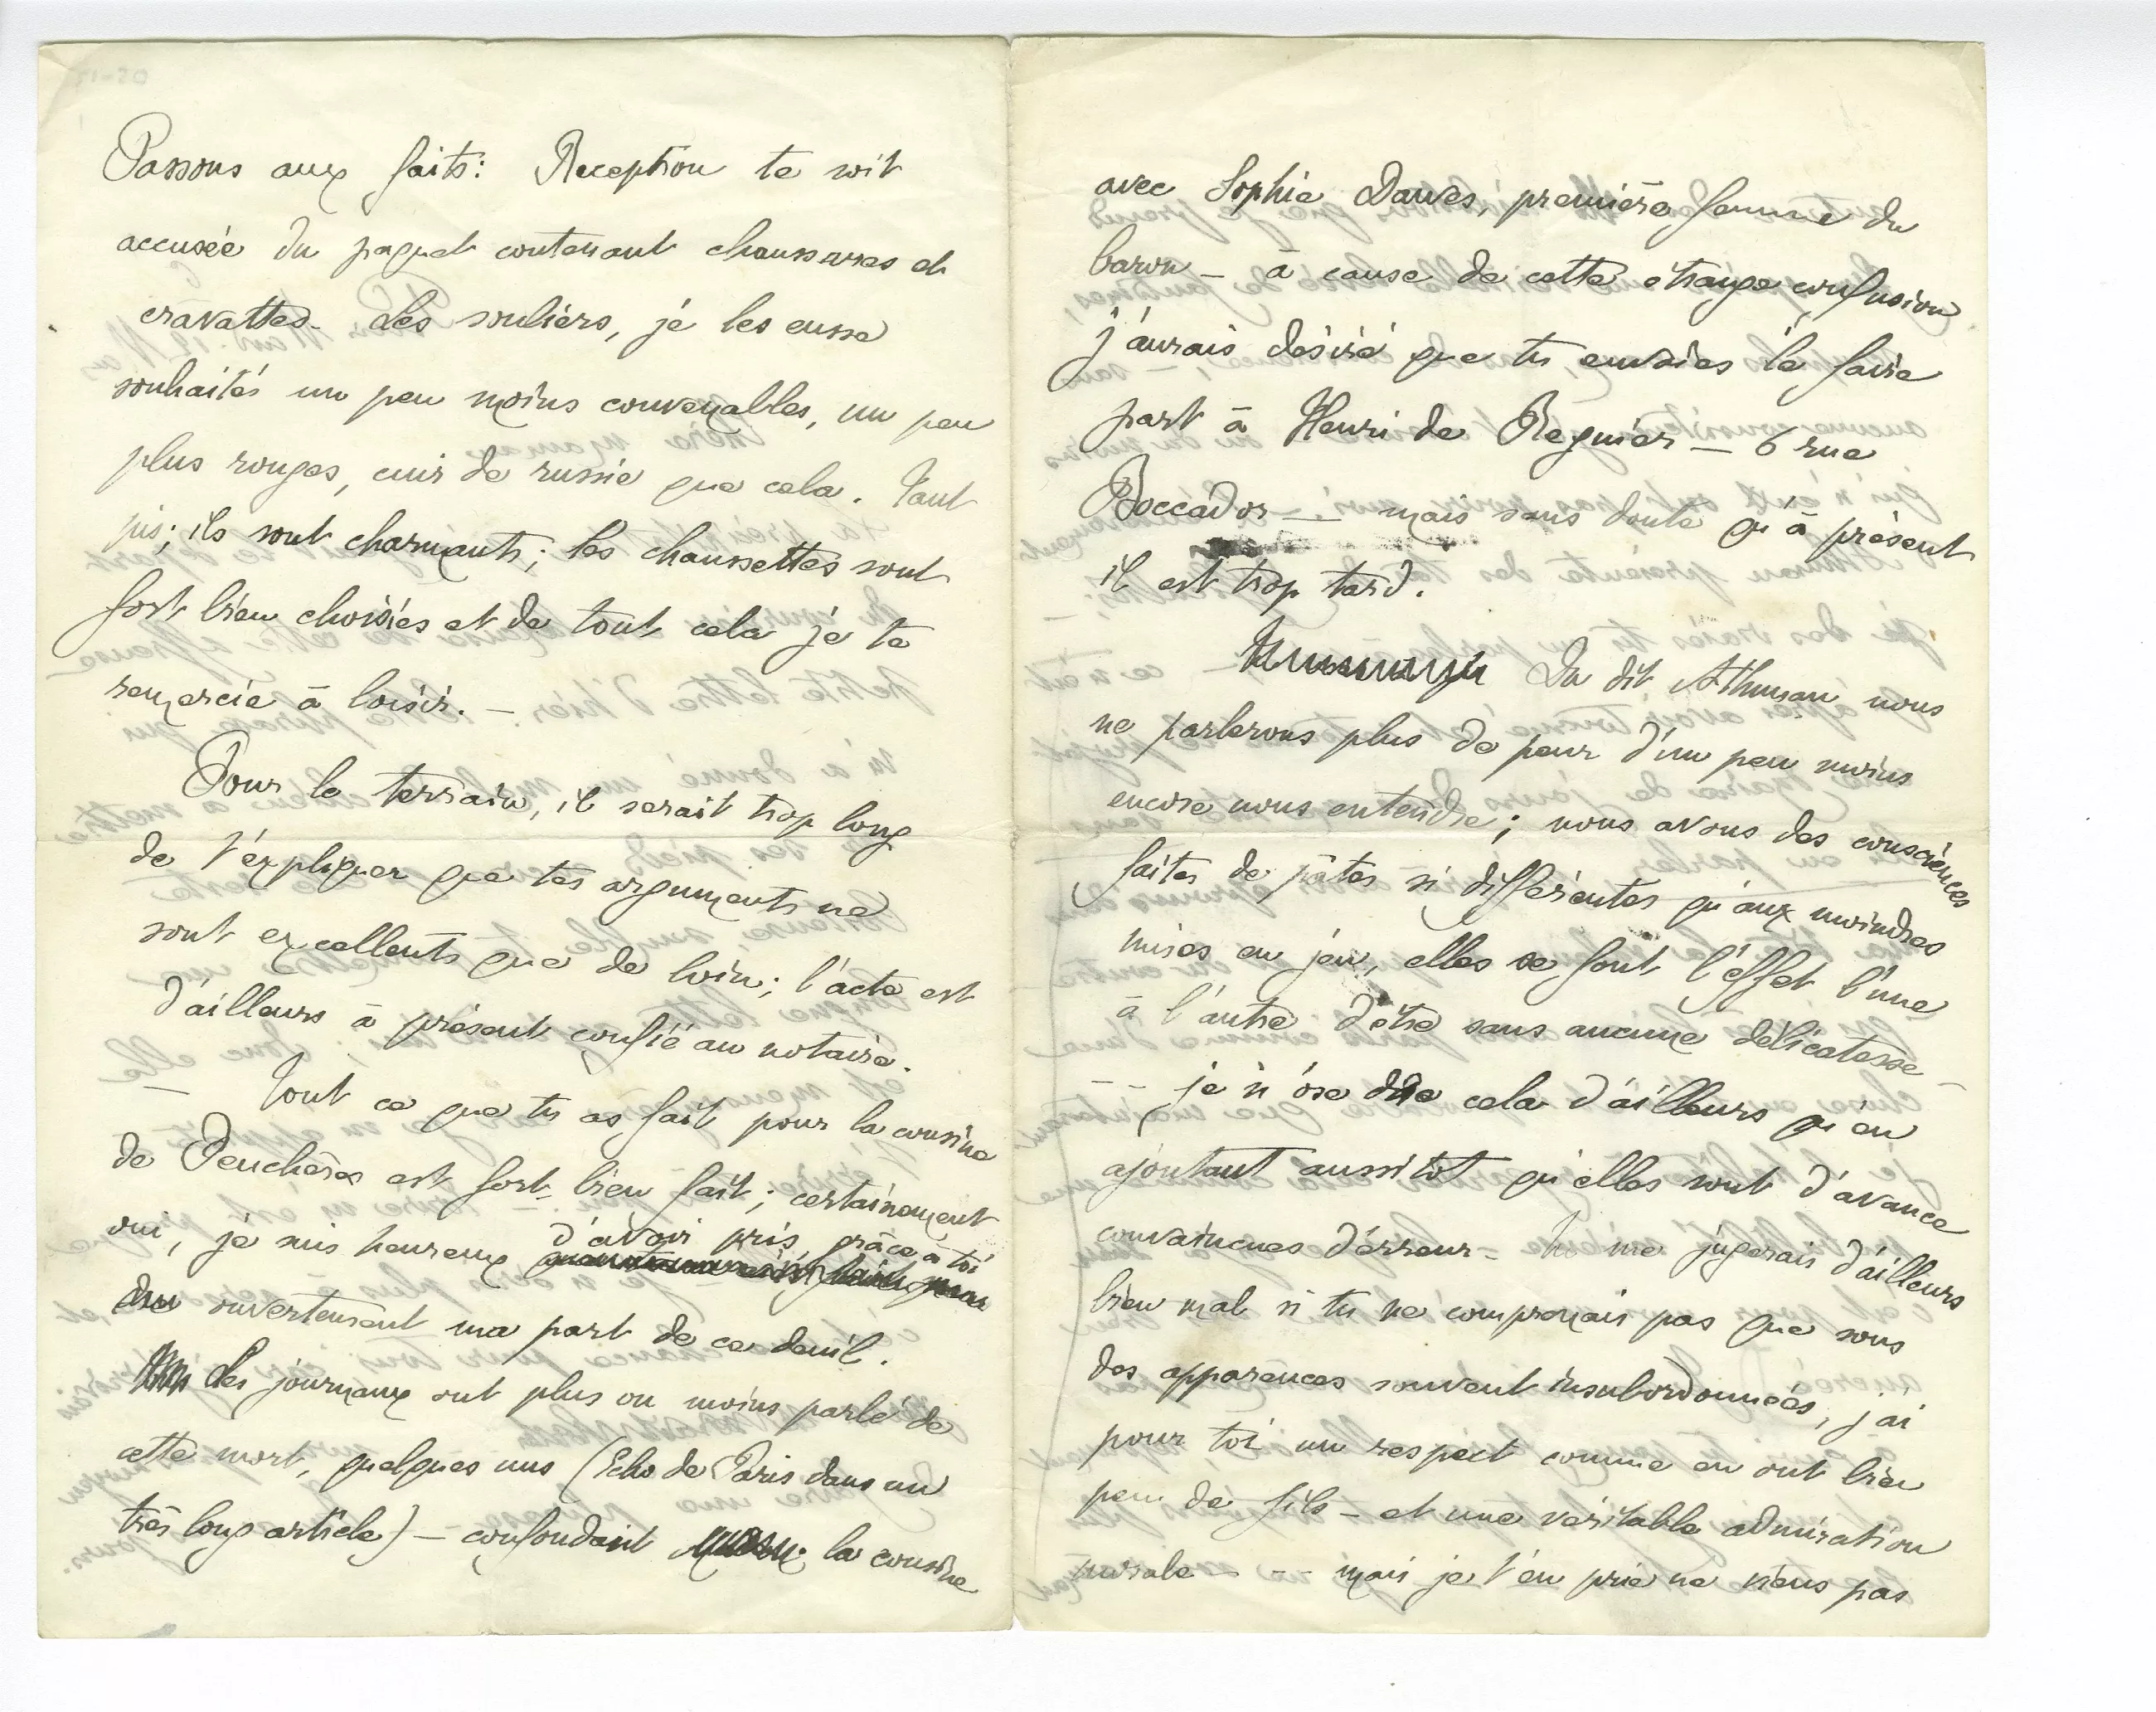 51-20
Passons aux faits : Reception te soit
accusée du paquet contenant chaussures et
cravattes. Les souliers, je les eusse
souhaités un peu moins convenables, un peu
plus rouges, cuir de russie que cela. Tant
pis ; ils sont charmants ; les chaussettes sont
fort bien choisies et de tout cela je te
remercie à loisir. –
Pour le terrain, il serait trop long
de t'expliquer que tes arguments ne
sont excellents que de loin ; l'acte est
d'ailleurs à présent confié au notaire.
– Tout ce que tu as fait pour la cousine
de Feuchères est fort bien fait ; certainement
oui, je suis heureux d'avoir pris, grâce à toi
ouvertement ma part de ce deuil.
Les journaux ont plus ou moins parlé de
cette mort, quelques uns (Echo de Paris dans un
très long article) – confondant la cousine
avec Sophie Dawes, première femme du
baron – à cause de cette étrange confusion
j'aurais désiré que tu envoies le faire
part à Henri de Regnier – 6 rue
Boccador – mais sans doute qu'à présent
il est trop tard.
Du dit Athman nous
ne parlerons plus de peur d'un peu moins
encore nous entendre ; nous avons des consciences
faites de pâtes si différentes qu'aux moindres
mises en jeu, elles se font l'effet l'une
à l'autre d'être sans aucune délicatesse –
-- je n'ose dire cela d'ailleurs qu'en
ajoutant aussitôt qu'elles sont d'avance
convaincues d'erreur – Tu me jugerais d'ailleurs
bien mal si tu ne comprenais pas que sous
des apparences souvent insubordonnées, j'ai
pour toi un respect comme en ont bien
peu de fils – et une véritable admiration
morale - -- mais je t'en prie ne viens pas